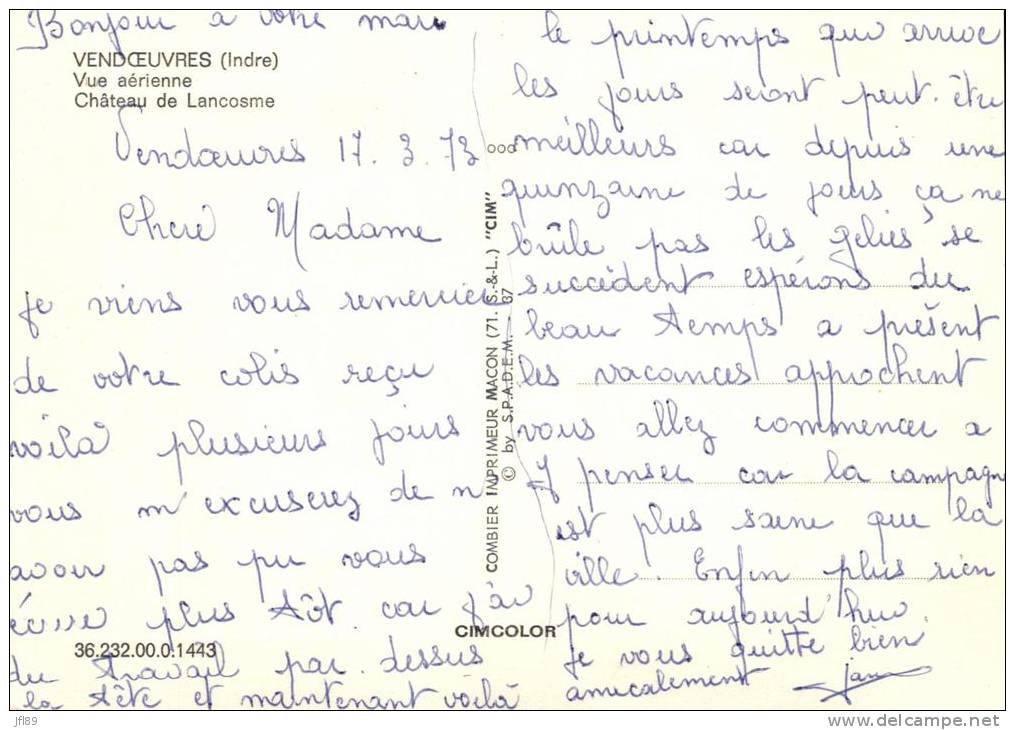 Bonjour a votre mari
VENDŒUVRES (Indre)
Vue aérienne
Château de Lancosme
Vendœuvres 17.3.73
Cheré Madame
je viens vous remercier
de votre colis reçu
voila plusieurs jours
vous m'excuserez de n
avoir pas pu vous
écrire plus tôt car j'ai
du travail par dessus
la tête et maintenant voilà
36.232.00.0.1443
COMBIER IMPRIMEUR MACON (71. S.-&-L.) "CIM"
© by S.P.A.D.E.M. 37
CIMCOLOR
le printemps qui arrive
les jours seront peut-être
meilleurs car depuis une
quinzaine de jours ça ne
brûle pas les gelées se
succèdent espérons du
beau temps a présent
les vacances approchent
vous allez commencer a
y penser car la campagne
est plus saine que la
ville. Enfin plus rien
pour aujourd'hui
je vous quitte bien
amicalement
jfl89
www.delcampe.net